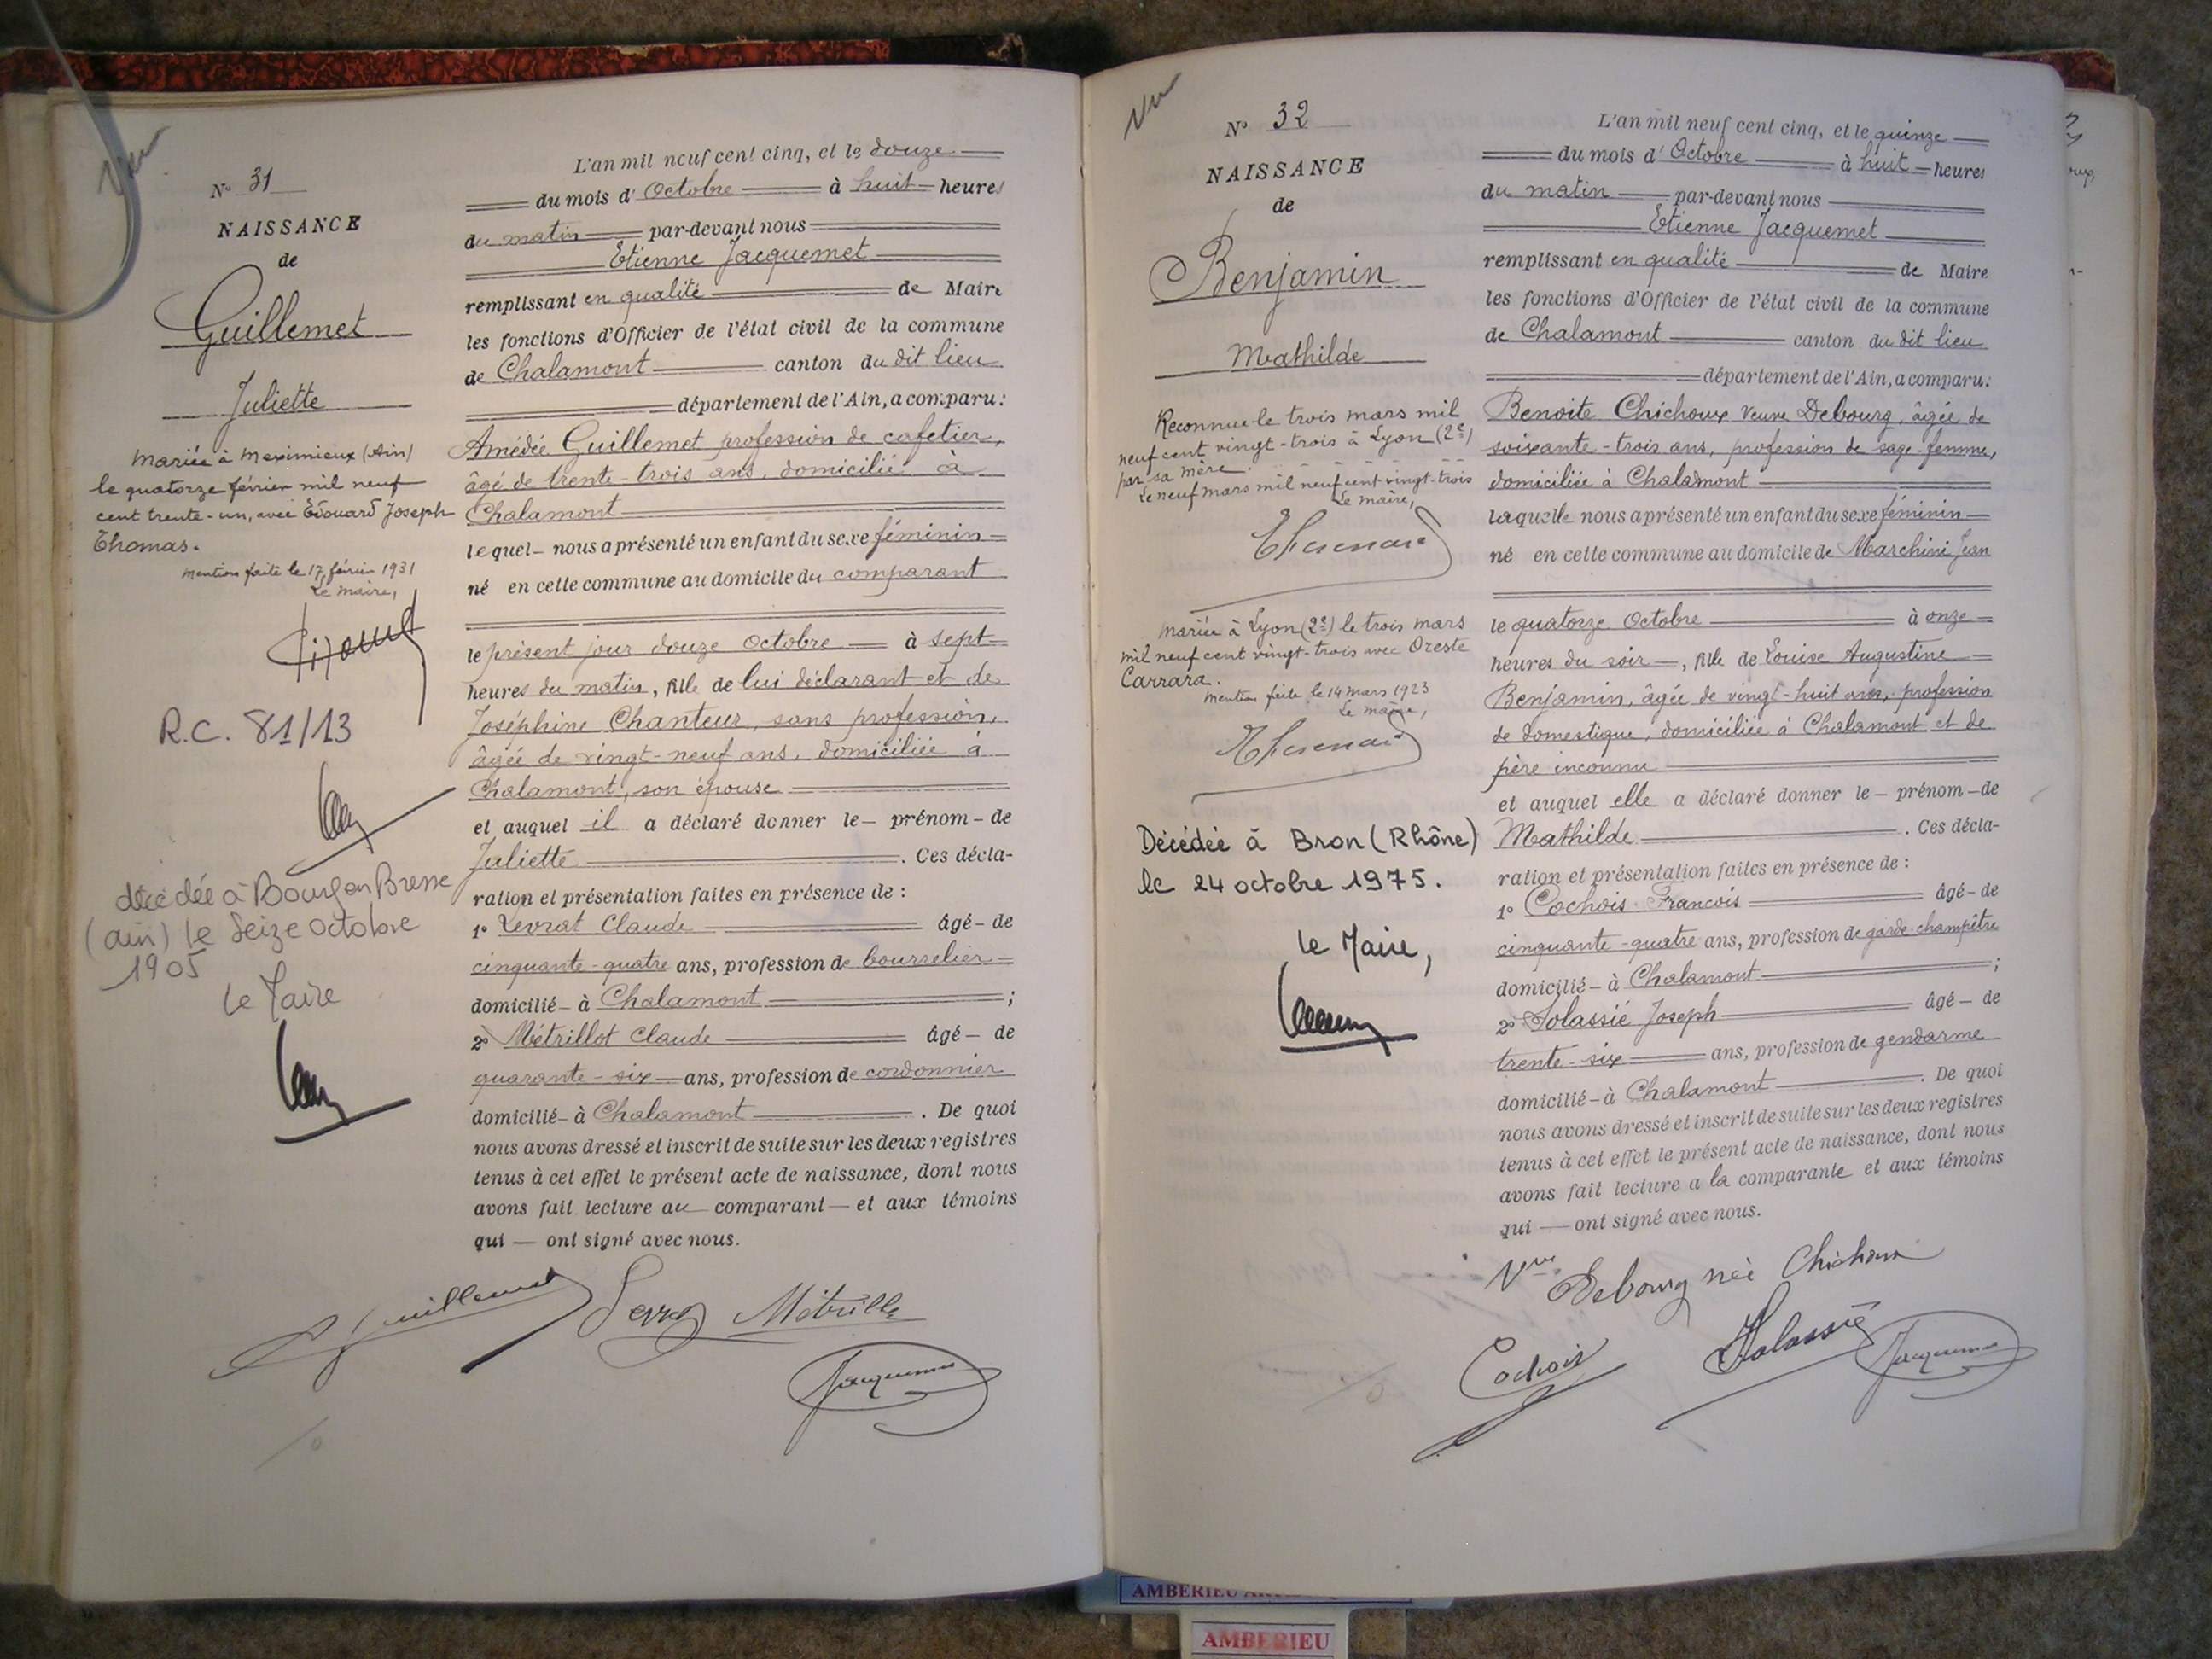 Vu
N° 31
NAISSANCE
de
Guillemet
Juliette
Mariée à Meximieux (Ain)
le quatorze février mil neuf
cent trente-un, avec Edouard Joseph
Thomas.
Mention faite le 17 février 1931
Le Maire,
R.C. 81/13
décédée à Bourg en Bresse
(ain) le Seize octobre
1905
Le Maire
L'an mil neuf cent cinq, et le douze
du mois d'Octobre à huit heures
du matin par-devant nous
Etienne Jacquemet
remplissant en qualité de Maire
les fonctions d'Officier de l'état civil de la commune
de Chalamont canton du dit lieu
département de l'Ain, a comparu:
Amédée Guillemet profession de cafetier,
âgé de trente-trois ans, domicilié à
Chalamont
lequel nous a présenté un enfant du sexe féminin
né en cette commune au domicile du comparant
le présent jour douze Octobre à sept
heures du matin, fille de lui déclarant et de
Joséphine Chanteur, sans profession,
âgée de vingt-neuf ans, domiciliée à
Chalamont, son épouse
et auquel il a déclaré donner le prénom de
Juliette. Ces décla-
ration et présentation faites en présence de :
1° Levrat Claude âgé de
cinquante-quatre ans, profession de bourrelier
domicilié à Chalamont ;
2° Métrillot Claude âgé de
quarante-six ans, profession de cordonnier
domicilié à Chalamont. De quoi
nous avons dressé et inscrit de suite sur les deux registres
tenus à cet effet le présent acte de naissance, dont nous
avons fait lecture au comparant et aux témoins
qui ont signé avec nous.
Guillemet
Métrillo
Jacquemet
Vu
N° 32
NAISSANCE
de
Benjamin
Mathilde
Reconnue le trois mars mil
neuf cent vingt-trois à Lyon (2e)
par sa mère.
Le neuf mars mil neuf cent vingt-trois
Le maire,
Mariée à Lyon (2e) le trois mars
mil neuf cent vingt-trois avec Oreste
Carrara.
Mention faite le 14 mars 1923
Le maire,
Décédée à Bron (Rhône)
le 24 octobre 1975.
le Maire,
L'an mil neuf cent cinq, et le quinze
du mois d'Octobre à huit heures
du matin par-devant nous
Etienne Jacquemet
remplissant en qualité de Maire
les fonctions d'Officier de l'état civil de la commune
de Chalamont canton du dit lieu
département de l'Ain, a comparu:
Benoite Chichoux veuve Debourg, âgée de
soixante-trois ans, profession de sage-femme,
domiciliée à Chalamont
laquelle nous a présenté un enfant du sexe féminin
né en cette commune au domicile de Marchini Jean
le quatorze Octobre à onze
heures du soir, fille de Louise Augustine
Benjamin, âgée de vingt-huit ans, profession
de domestique, domiciliée à Chalamont et de
père inconnu
et auquel elle a déclaré donner le prénom de
Mathilde. Ces décla-
ration et présentation faites en présence de :
1° Cochois François âgé de
cinquante-quatre ans, profession de garde-champêtre
domicilié à Chalamont ;
2° Solassié Joseph âgé de
trente-six ans, profession de gendarme
domicilié à Chalamont. De quoi
nous avons dressé et inscrit de suite sur les deux registres
tenus à cet effet le présent acte de naissance, dont nous
avons fait lecture a la comparante et aux témoins
qui ont signé avec nous.
Vve Debourg née Chichoux
Cochois
Solassié
Jacquemet
AMBERIEU
AMBERIEU